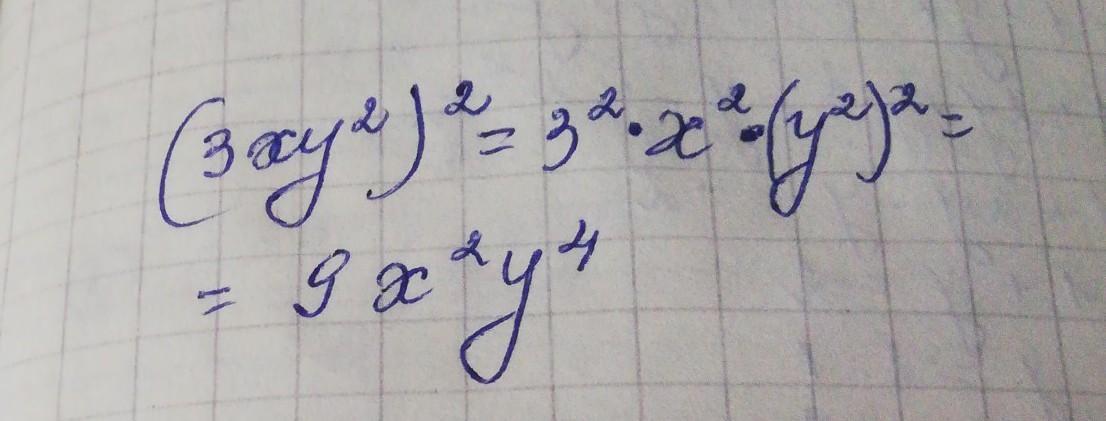 (3xy²)² = 3² · x² · (y²)² =
= 9x²y⁴